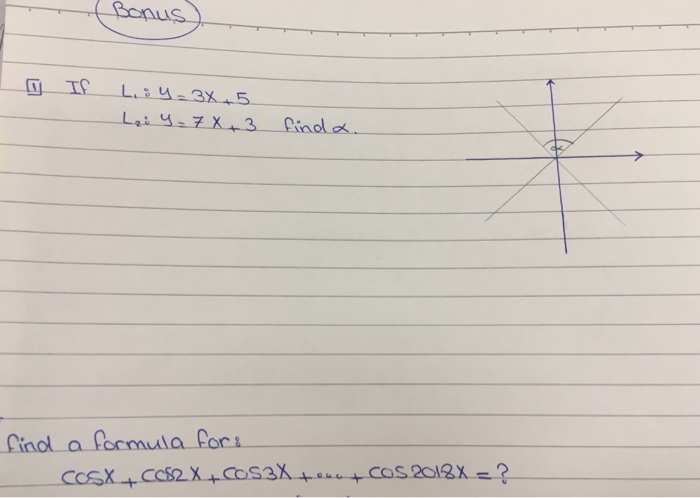 Bonus
1 If L₁: y = 3x + 5
L₂: y = 7x + 3 find α.
α
find a formula for:
cosx + cos2x + cos3x + .... + cos2018x = ?